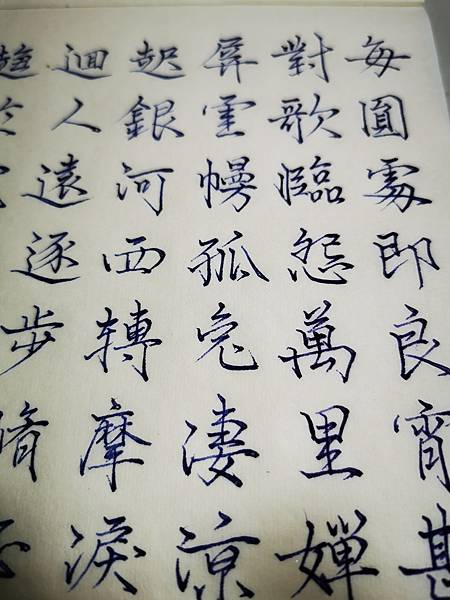 每圓處即良宵甚
對歌臨怨萬里嬋
屏雲幔孤兔淒涼
起銀河西轉摩淚
迴人遠逐步